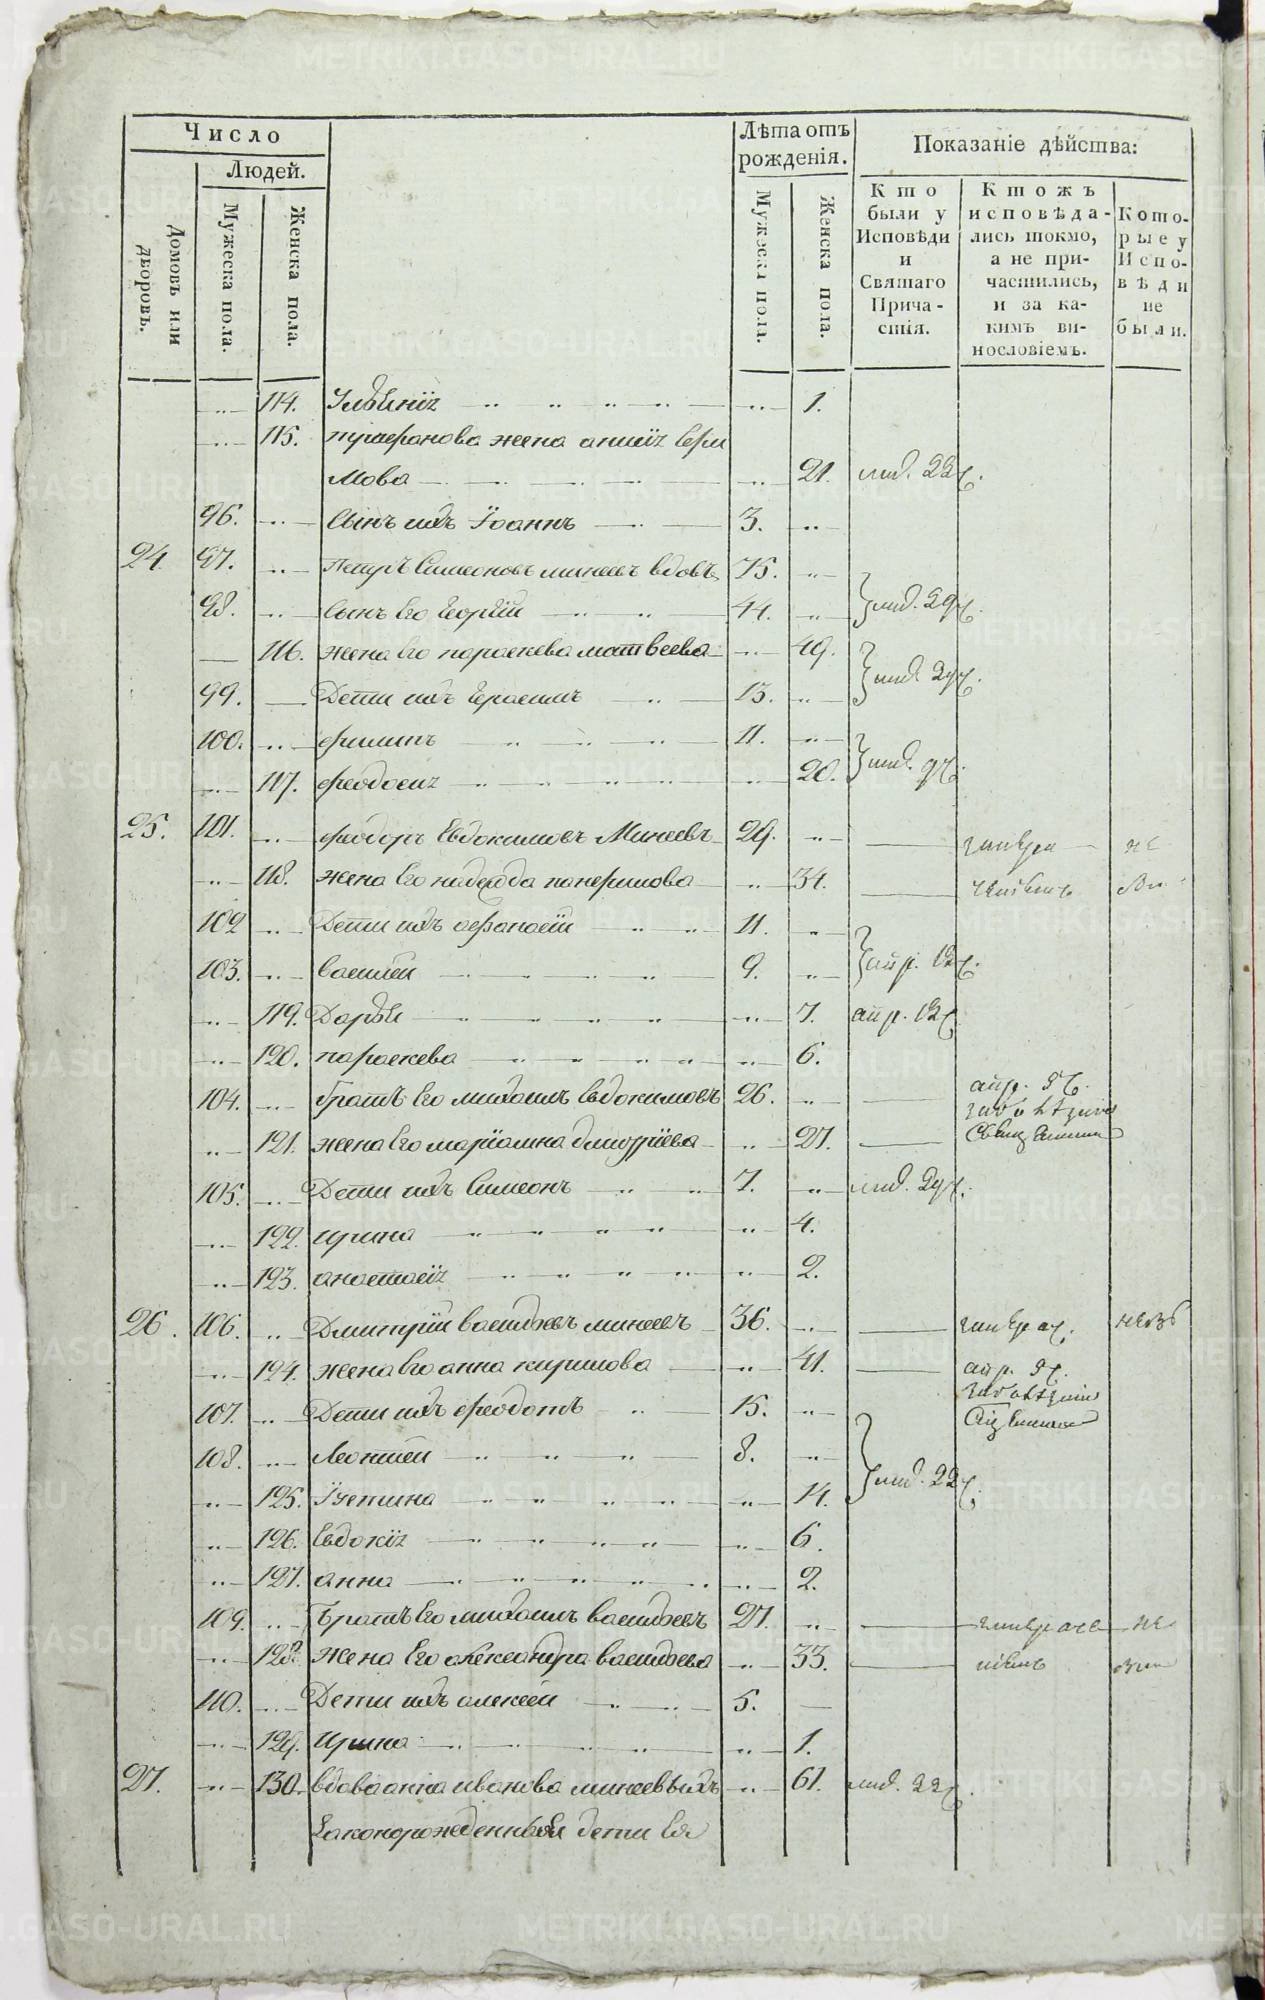 Число
Людей.
Домовъ или дворовъ.
Мужеска пола.
Женска пола.
Лѣта отъ рожденія.
Мужеска пола.
Женска пола.
Показаніе дѣйства:
Кто были у Исповѣди и Святаго Причастія.
Ктожъ исповѣдались токмо, а не причастились, и за какимъ винословіемъ.
Которые у Исповѣди не были.
114. 1.
115. жена
мова 21. 22
96. Сынъ ихъ Іоаннъ 3.
24 97. Петръ Симеоновъ минеевъ вдовъ 75.
98. Сынъ Его Георгій 44. 29
116. жена Его параскева матвеева 49.
99. Дети ихъ Герасимъ 13. 29
100. филипъ 11.
117. феодосия 20. 9
25. 101. феодоръ Евдокимовъ Минеевъ 29. не
118. жена Его надежда панфилова 34.
102 Дети ихъ афанасій 11.
103. василей 9. апр. 12
119. Дарья 7. апр. 12
120. параскева 6.
104. братъ Его михаилъ Евдокимовъ 26. апр. 5
121. жена Его маріамна дмитріева 27.
105. Дети ихъ Симеонъ 7. 29
122. ирина 4.
123. анастасія 2.
26. 106. Дмитрій васильевъ минеевъ 36.
124. жена Его анна кирилова 41. апр.
107. Дети ихъ феодотъ 15.
108. Леонтей 8. 22
125. Іустина 14.
126. Евдокія 6.
127. анна 2.
109. братъ Его михаилъ васильевъ 27. не
128. жена Его александра васильева 33.
110. Дети ихъ алексей 5.
129. Ирина 1.
27. 130. вдова анна иванова минеевыхъ 61. 22
законорожденныя дети Ея
METRIKI.GASO-URAL.RU